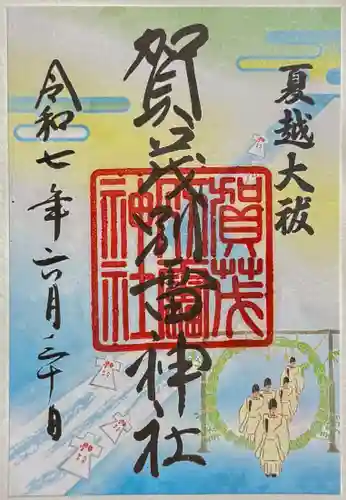 夏越大祓
賀茂別雷神社
賀茂別雷神社
令和七年六月三十日